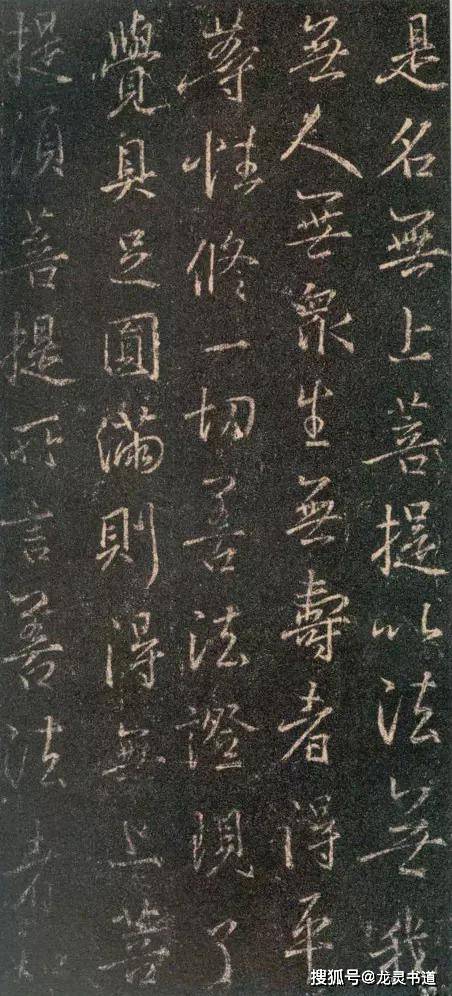 是名無上菩提以法無我
無人無衆生無壽者得平
等性修一切善法證現了
覺具足圓滿則得無上菩
提須菩提所言善法者如
搜狐号@龙灵书道